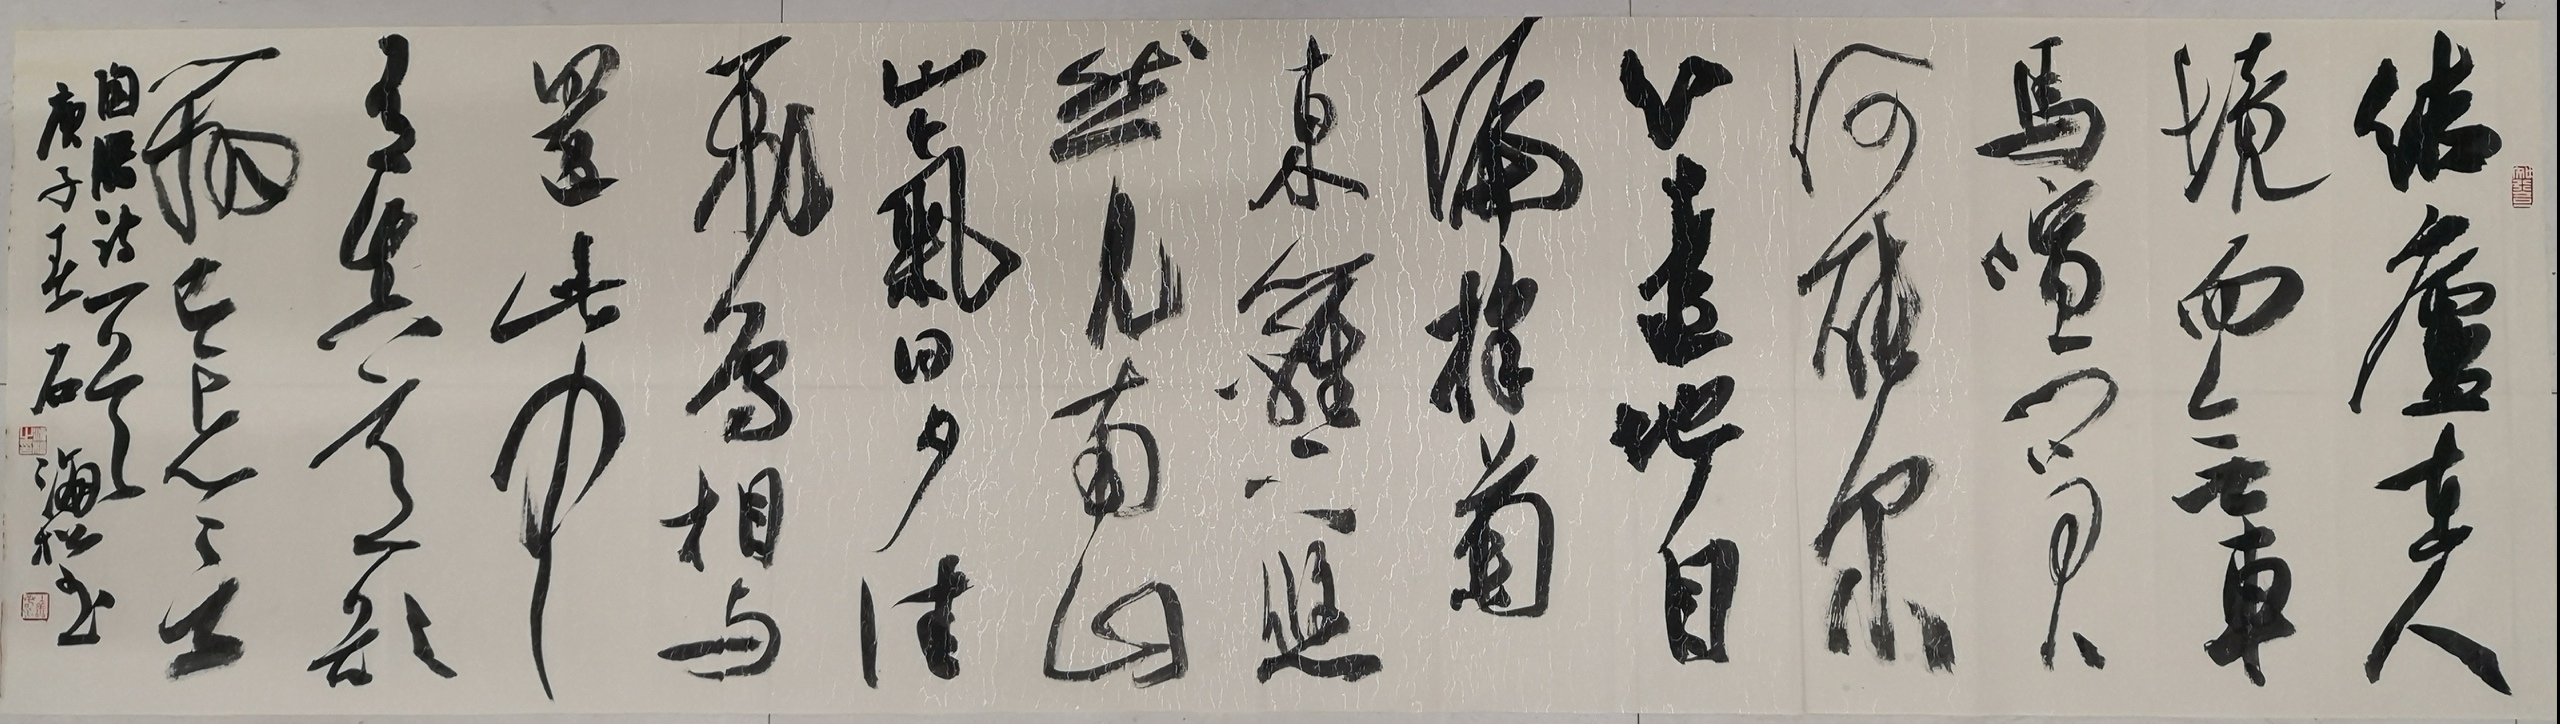 結廬在人
境而無車
馬喧问君
何能尔
心遠地自
偏採菊
東籬下悠
然見南山
山氣日夕佳
飛鳥相与
還此中
有真意欲
辨已忘言
陶潛詩一首
庚子春石海松书